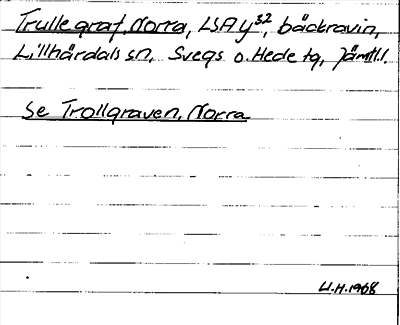 Trullegraf, Norra, LSA y32, bäckravin,
Lillhärdals sn, Svegs o. Hede tg, Jämtl.l.
Se Trollgraven, Norra
U.H. 1968